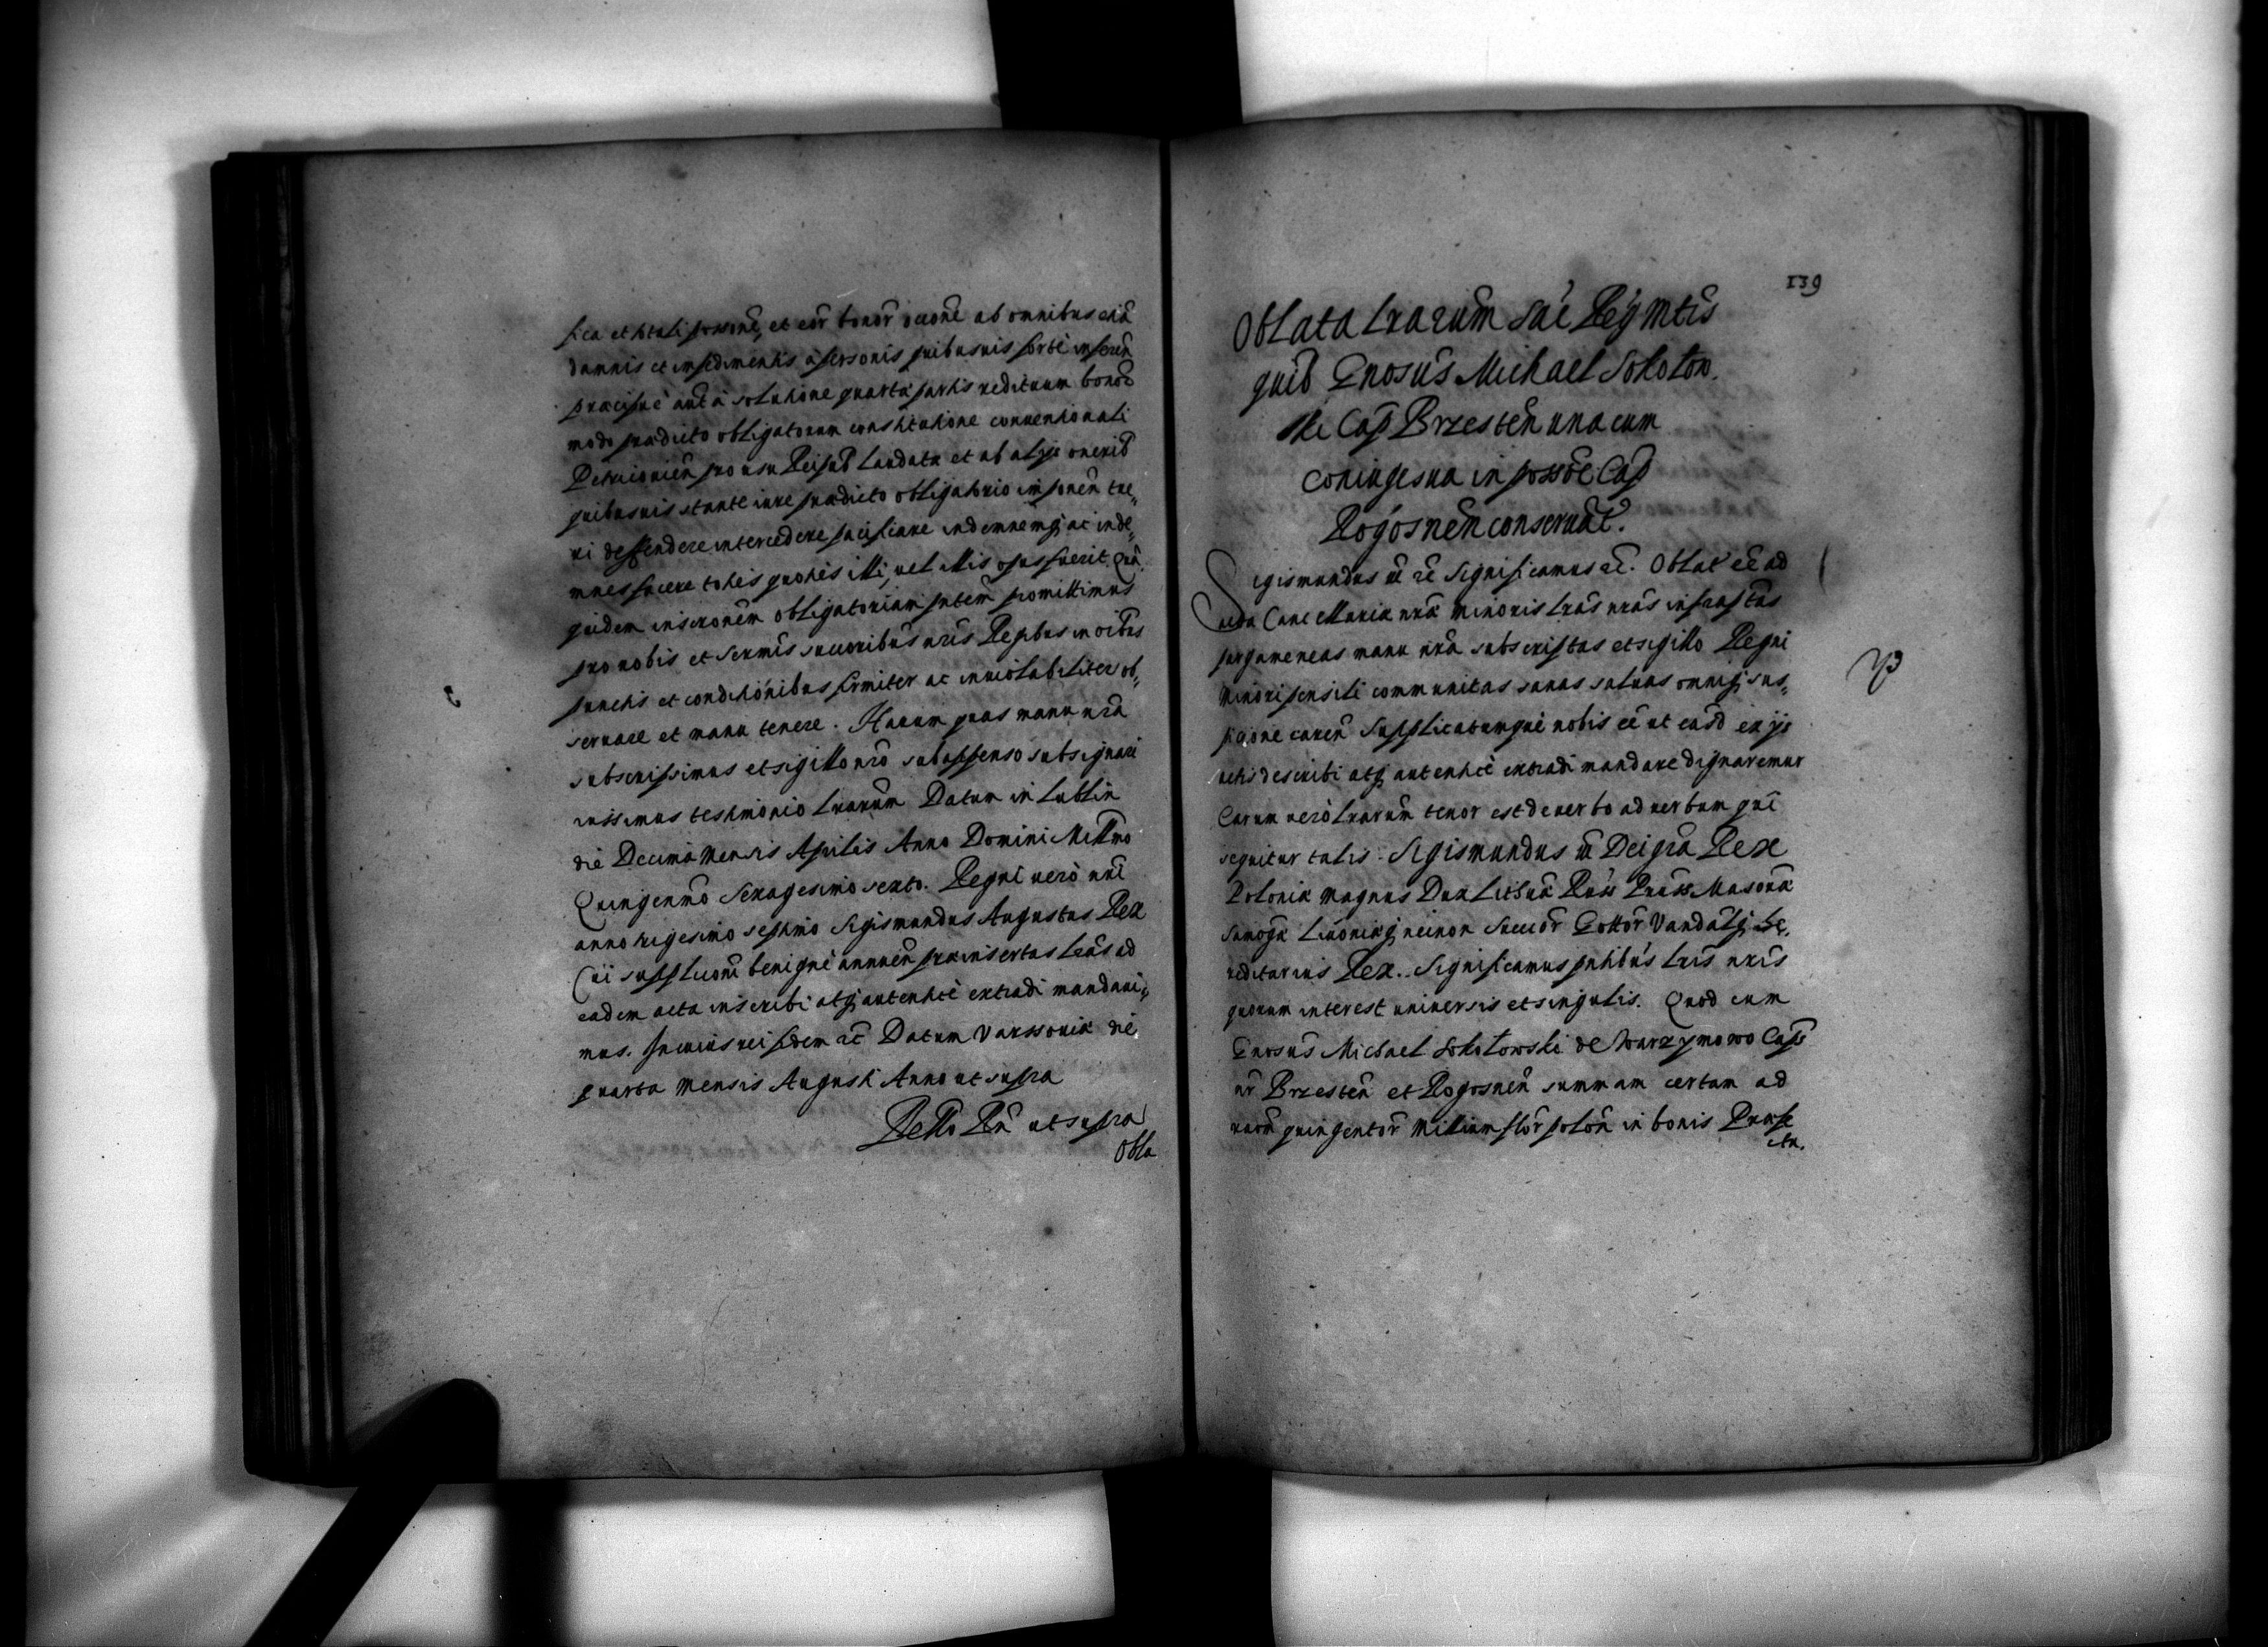 fica et totali possone, et eor bonor ocione ab omnibus etia
damnis et impedimentis a personis quibusuis forte inferen
præcipuè aut à solutione quarta partis redituum bonor
modo prædicto obligatorum constitutione conuentionali
Petricouien pro usu Reipub Laudata et ab alys onerib
quibusuis stante iure prædicto obligatorio imponen tue„
ri deffendere intercedere pacificare indemnemq ac inde„
mnes facere toties quoties illi, uel illis opus fuerit. Quā
quidem inscronem obligatoriam pntem promittimus
pro nobis et Sermis succoribus nris Regibus in oibus
punctis et conditionibus firmiter ac inuiolabiliter ob„
seruare et manu tenere. Harum quas manu nra
subscripsimus et sigillo nro subappenso subsignari
iussimus testimonio Lrarum Datum in Lublin
die Decima Mensis Aprilis Anno Domini Millmo
Quingenmo Sexagesimo sexto. Regni uero nri
anno trigesimo septimo Sigismundus Augustus Rex
Cui suppliconi benignè annuen præinsertas Lras ad
eadem acta inscribi atq autenticè extradi mandaui„
mus. In cuius rei fidem ac Datum Varssouiæ die
quarta Mensis Augusti Anno ut supra
ut supra
Obla
139
Oblata Lrarum Sac Rey Mtis
quib Gnosus Michael Sokolow.
ski Cap Brzesten una cum
coniuge sua in possoe Cap
Rogosnen conseruat.
Sigismundus III rc Significamus rc. Oblat ee ad
acta Cancellariæ nræ Minoris Lras nras infraptas
pargameneas manu nra subscriptas et sigillo Regni
Minori pensili communitas sanas saluas omniq sus„
picione caren Supplicatumque nobis ee ut easd ex ys
actis describi atq autenticè extradi mandare dignaremur
Earum uero Lrarum tenor est de uerbo ad uerbum qui
sequitur talis. Sigismundus III Dei gra Rex
Poloniæ Magnus Dux Lithuæ Russ Pruss Masouæ
Samogæ Liuoniæq necnon Suecor Gottor Vandalq he„
reditarius Rex. Significamus pntibus Lris nris
quorum interest uniuersis et singulis. Quod cum
Gnosus Michael Sokołowski de Warzymowo Cap
nr Brzesten et Rogosnen summam certam ad
quingentor Millium flor polon in bonis Præfe
ctu.